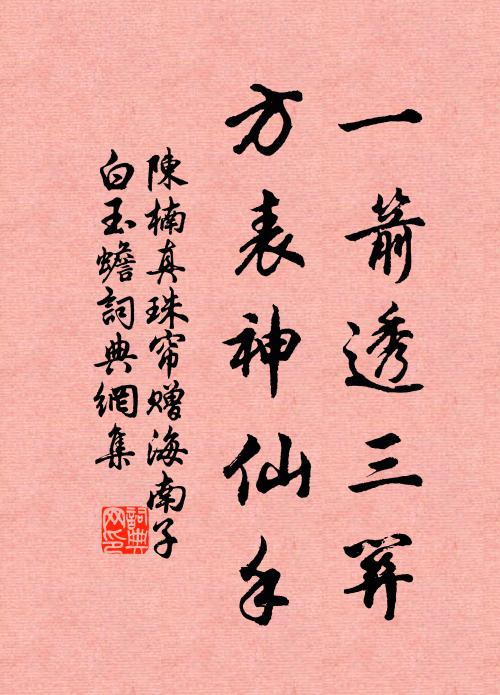 一箭透三關
方表神仙手
陳楠真珠帘赠海南子
白玉蟾詞典網集
詞典网印